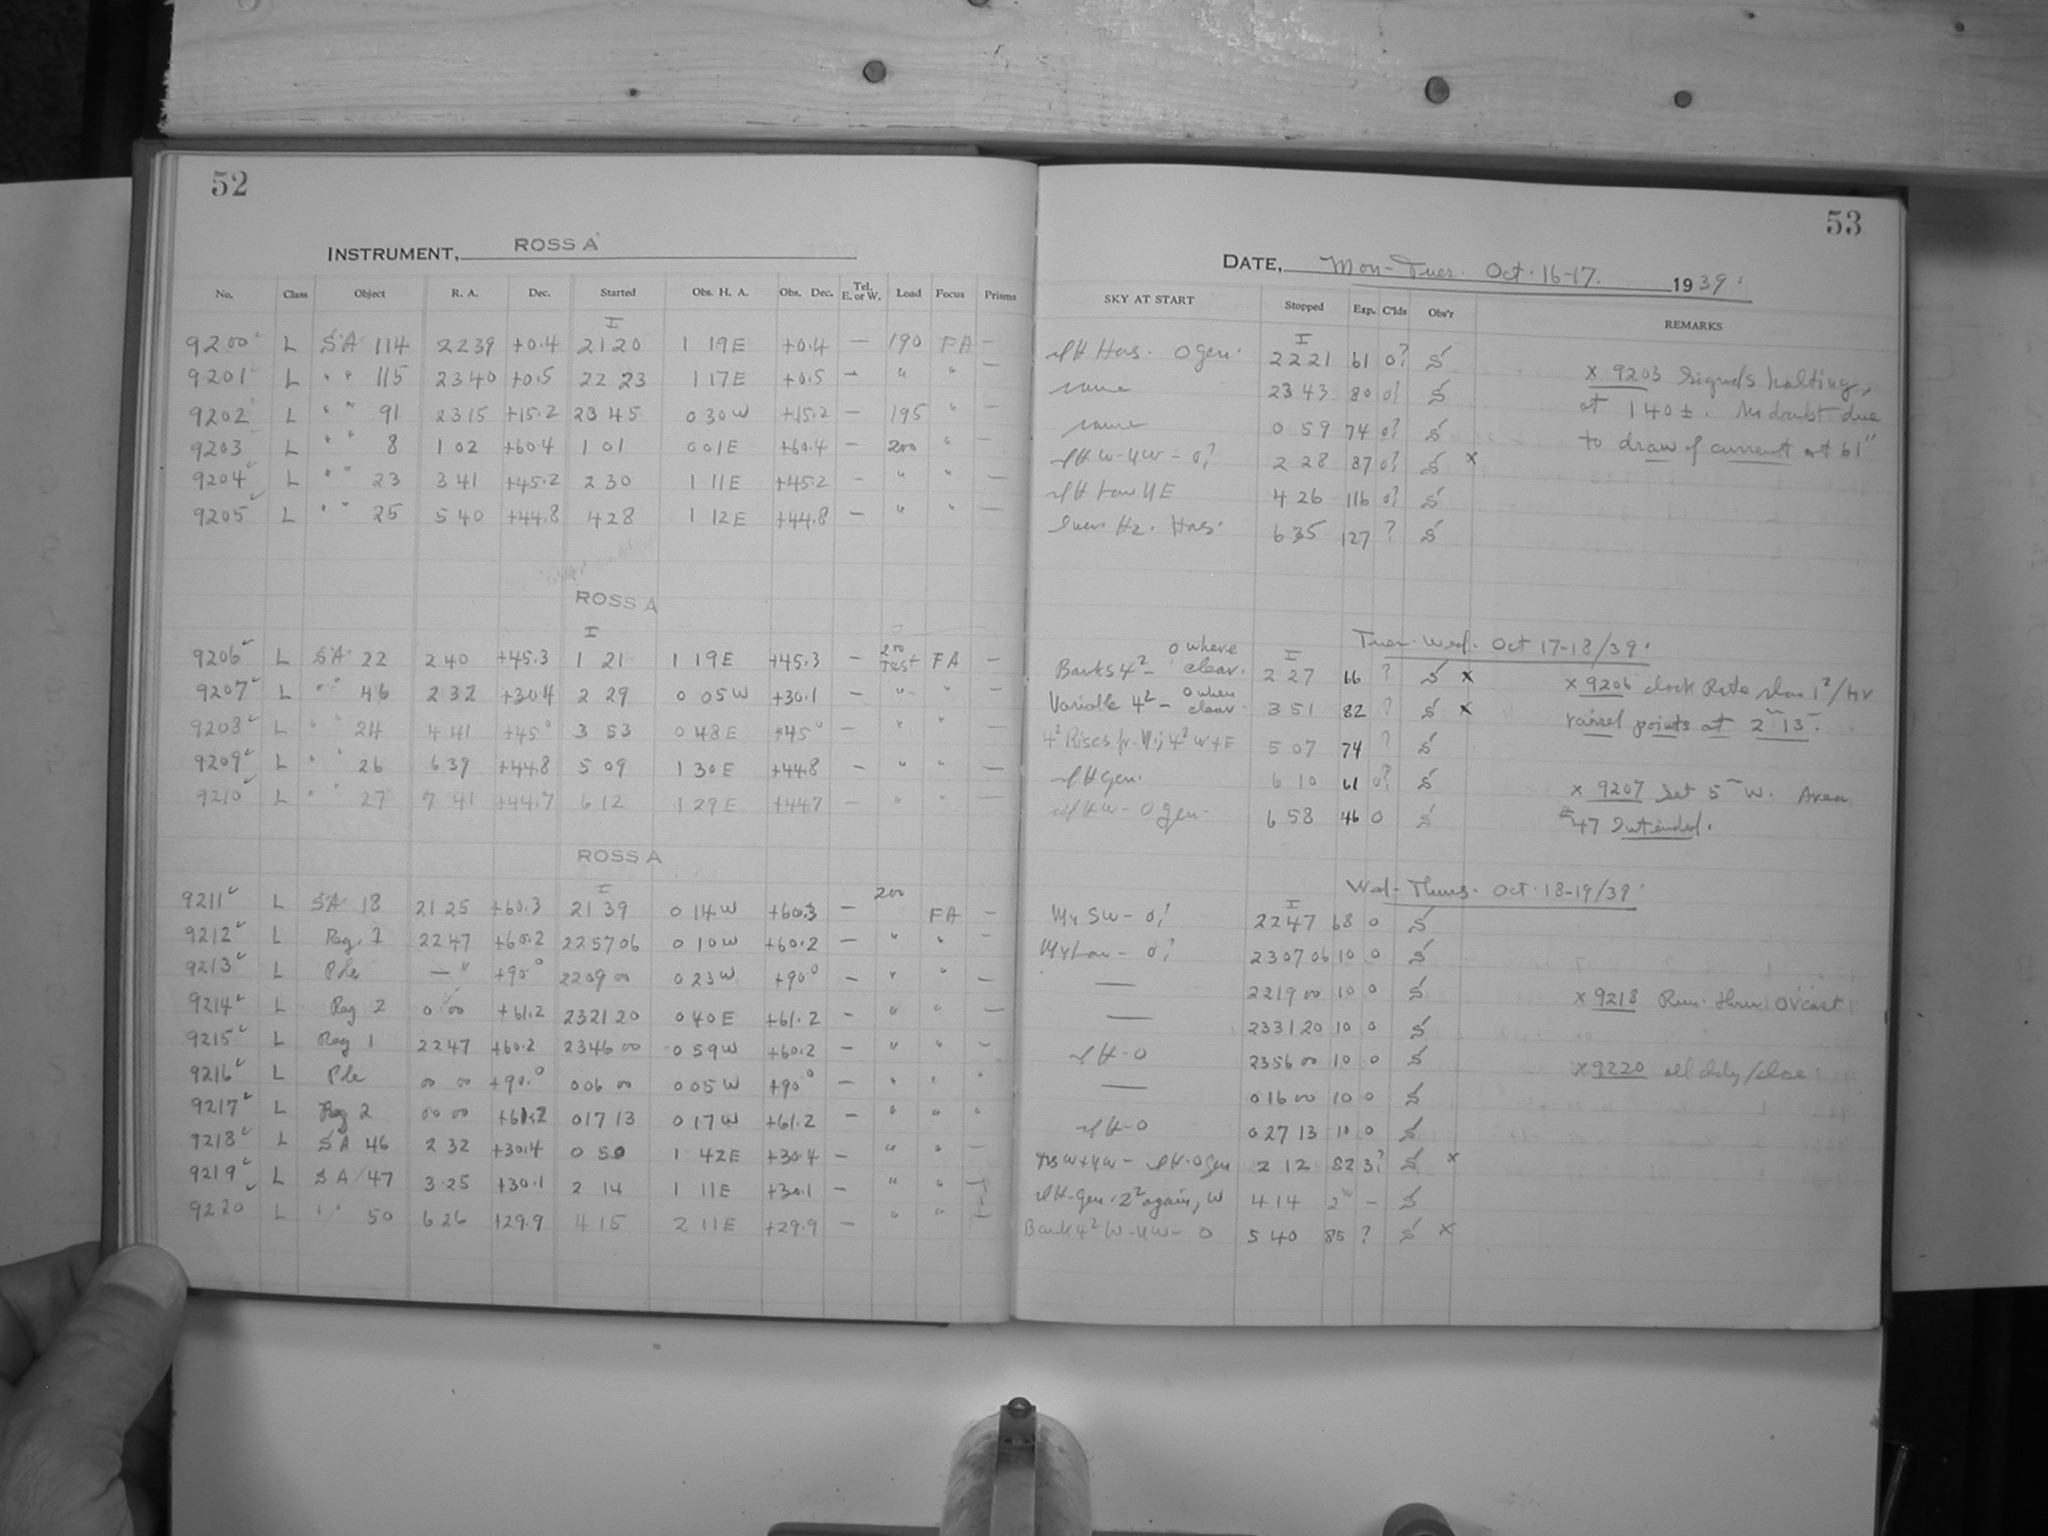 52
INSTRUMENT, ROSS A
No. Class Object R. A. Dec. Started Obs. H. A. Obs. Dec. Tel. E. or W. Load Focus Prisms
I
9200 L SA 114 2239 +0.4 2120 1 19E +0.4 — 190 FA —
9201 L " " 115 2340 +0.5 2223 1 17E +0.5 — " " —
9202 L " " 91 2315 +15.2 2345 0 30W +15.2 — 195 " —
9203 L " " 8 1 02 +60.4 1 01 0 01E +60.4 — 200 " —
9204 L " " 23 3 41 +45.2 2 30 1 11E +45.2 — " " —
9205 L " " 25 5 40 +44.8 4 28 1 12E +44.8 — " " —
ROSS A
I
9206 L SA 22 2 40 +45.3 1 21 1 19E +45.3 — 200 Test FA —
9207 L " " 46 2 32 +30.4 2 29 0 05W +30.1 — " " —
9208 L " " 24 4 41 +45° 3 53 0 48E +45° — " " —
9209 L " " 26 6 39 +44.8 5 09 1 30E +44.8 — " " —
9210 L " " 27 7 41 +44.7 6 12 1 29E +44.7 — " " —
ROSS A
I
9211 L SA 18 21 25 +60.3 21 39 0 14W +60.3 — 200 FA —
9212 L Reg. 1 2247 +60.2 225706 0 10W +60.2 — " " —
9213 L Pole — " +90° 2209 00 0 23W +90° — " " —
9214 L Reg 2 0 00 +61.2 232120 0 40E +61.2 — " " —
9215 L Reg 1 2247 +60.2 2346 00 0 59W +60.2 — " " —
9216 L Pole 00 00 +90.° 006 00 0 05W +90° — " " "
9217 L Reg 2 00 00 +61.2 017 13 0 17W +61.2 — " " "
9218 L SA 46 2 32 +30.4 0 50 1 42E +30.4 — " " —
9219 L SA 47 3 25 +30.1 2 14 1 11E +30.1 — " " —
9220 L " " 50 6 26 +29.9 4 15 2 11E +29.9 — " " —
53
DATE, Mon-Tues. Oct. 16-17. 1939.
SKY AT START Stopped Exp. C'lds Obs'r REMARKS
I
Has. 0 gen. 2221 61 0? S
same 2343 80 0? S
same 0 59 74 0? S
W-NW - 0? 2 28 87 0? S x
low NE 4 26 116 0? S
Hz. Has. 6 35 127 ? S
x 9203 Signals halting,
at 140±. No doubt due
to draw of current at 61"
Tues-Wed. Oct 17-18/39.
I
Banks 4² - 0 where clear. 2 27 66 ? S x
Variable 4² - 0 when clear. 3 51 82 ? S x
4² Rises fr. N; 4² W+E 5 07 74 ? S
gen. 6 10 61 0? S
W - 0 gen. 6 58 46 0 S
x 9206 Clock Rate slow 1²/Hr
raised points at 2 13.
x 9207 Set 5 W. Area
47 Intended.
Wed-Thurs. Oct. 18-19/39.
I
SW - 0? 2247 68 0 S
low - 0? 230706 10 0 S
— 2219 00 10 0 S
— 233120 10 0 S
- 0 2356 00 10 0 S
— 016 00 10 0 S
- 0 02713 10 0 S
W+NW - 0 gen 2 12 82 3? S x
gen. 2² again, W 4 14 2 — S
Bank 4² W-NW - 0 5 40 85 ? S x
x 9218 Run. thru Ov'cast
x 9220 all / close